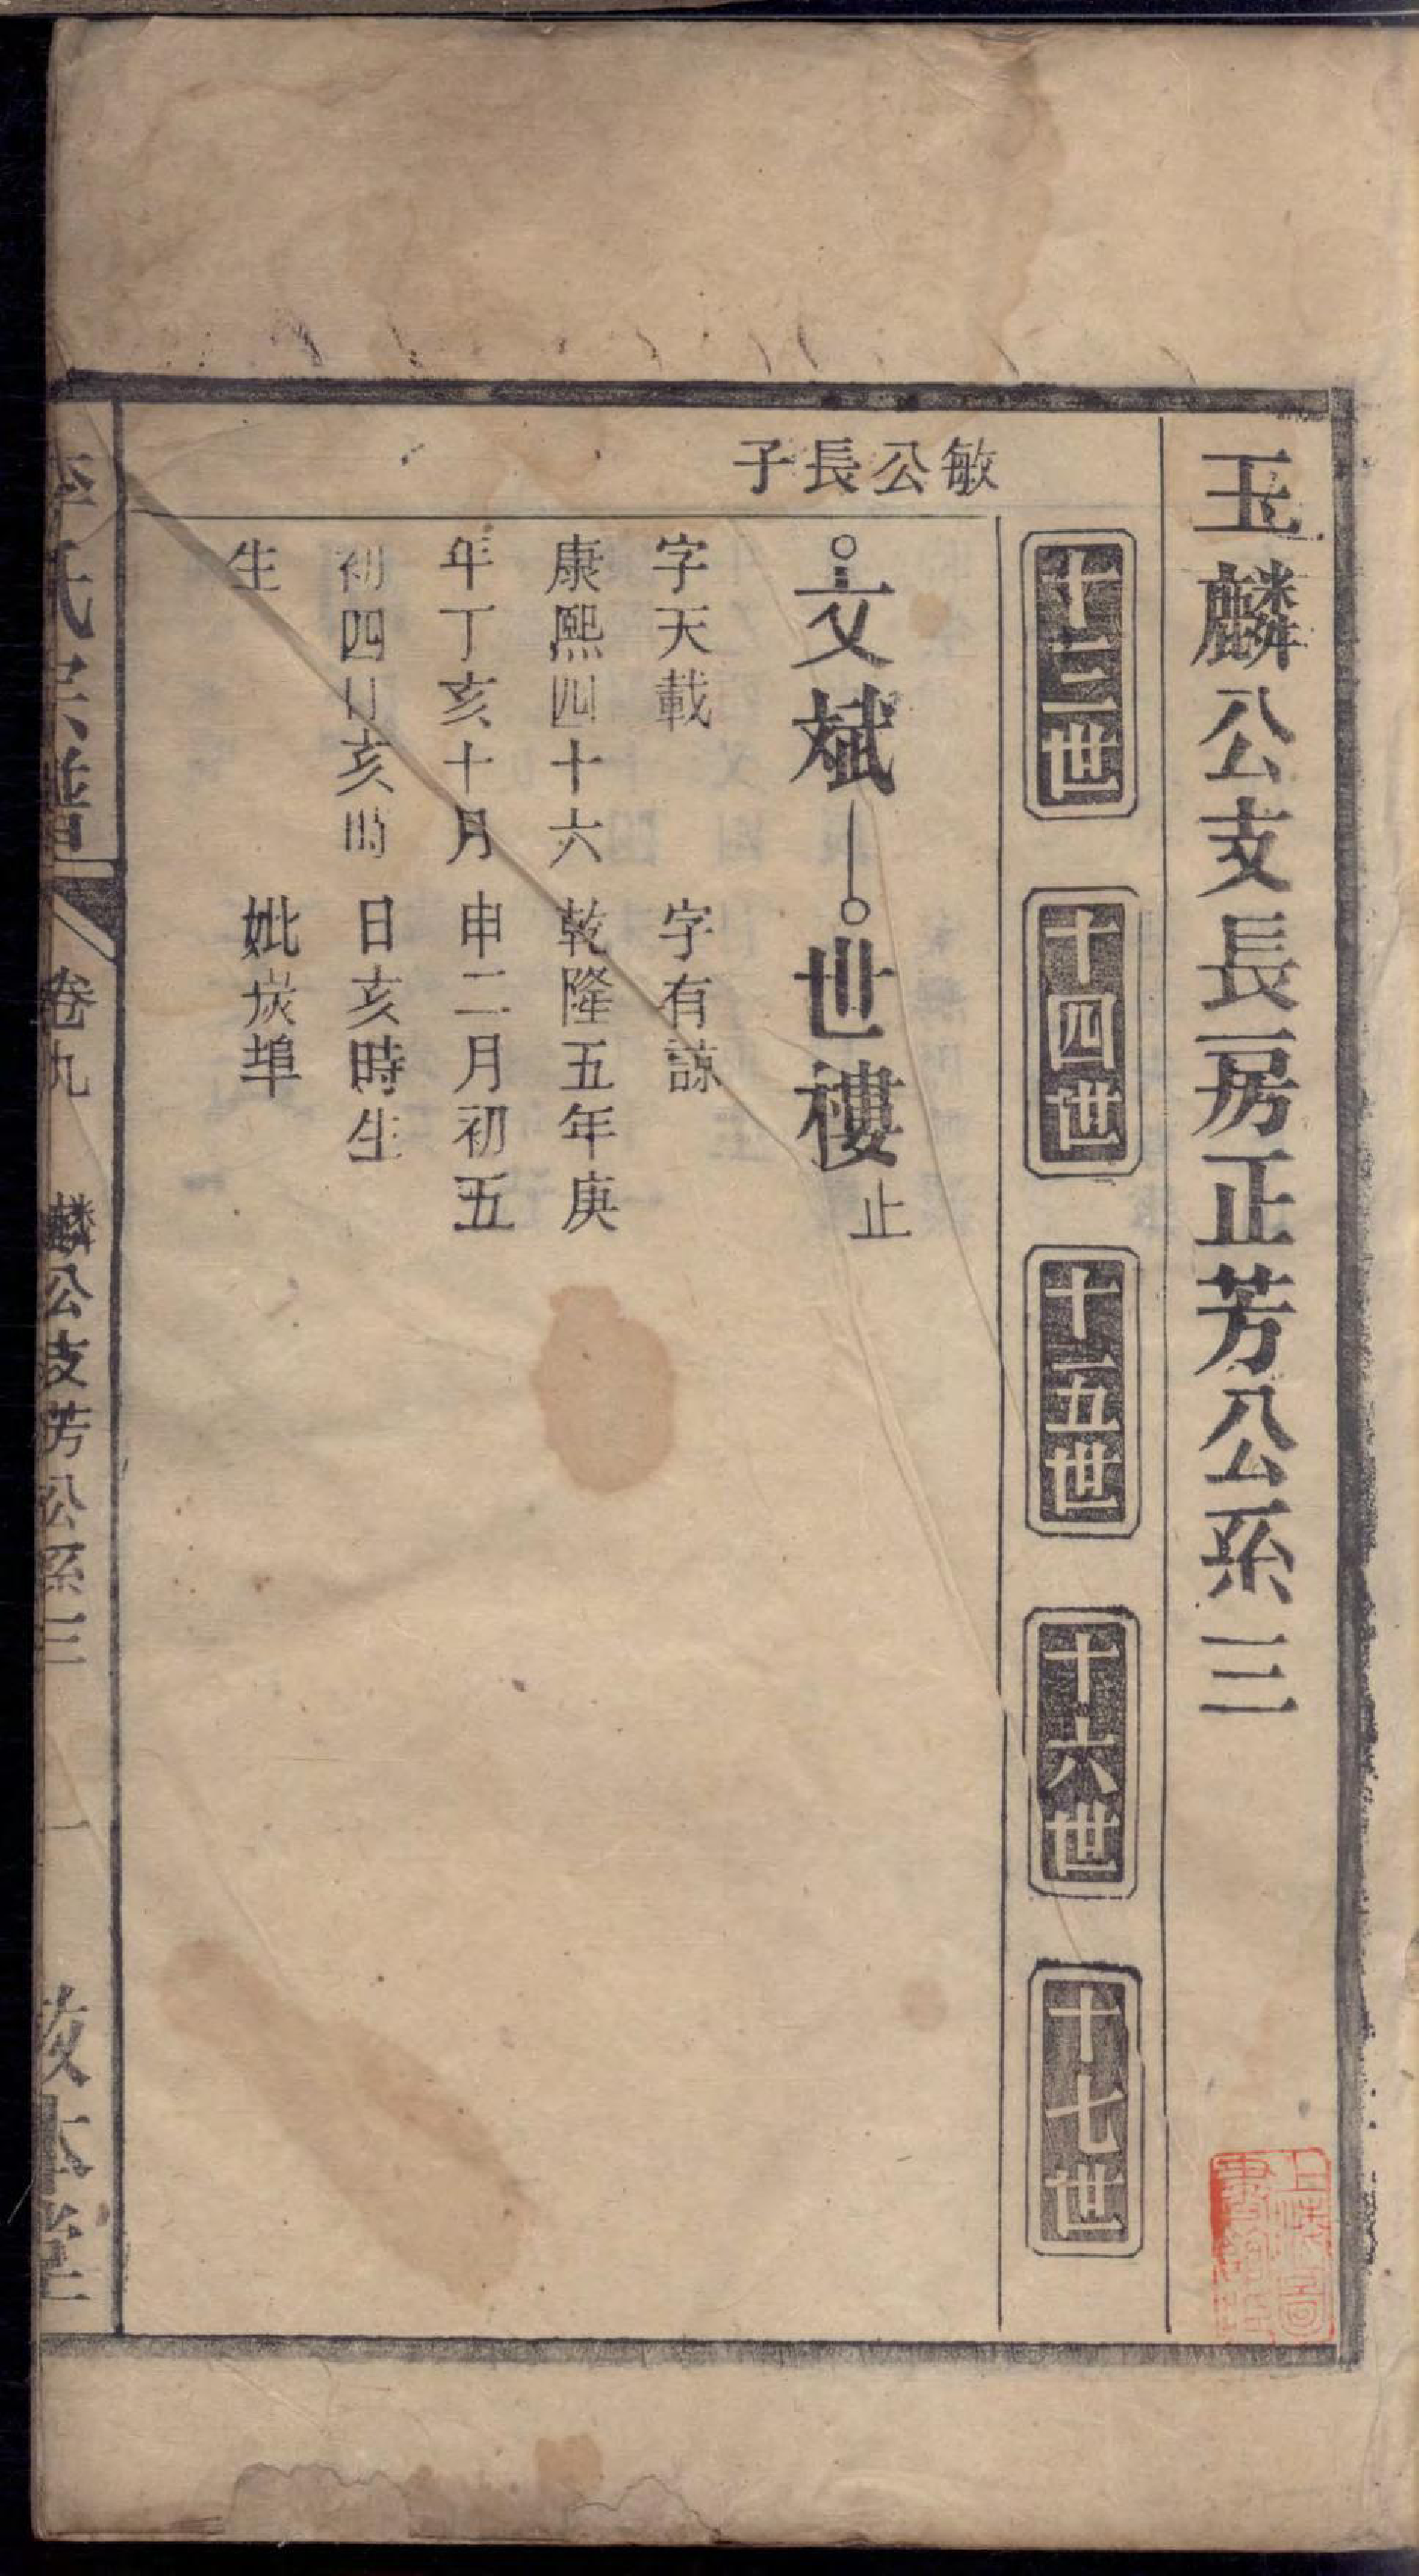 玉麟公支長房正芳公系三
十三世
十四世
十五世
十六世
十七世
敏公長子
文斌
世樓止
字天載
康熙四十六
年丁亥十月
初四日亥時
生
字有諒
乾隆五年庚
申二月初五
日亥時生
妣炭埠
李氏宗譜
卷九
麟公支芳公系三
一
敦本堂